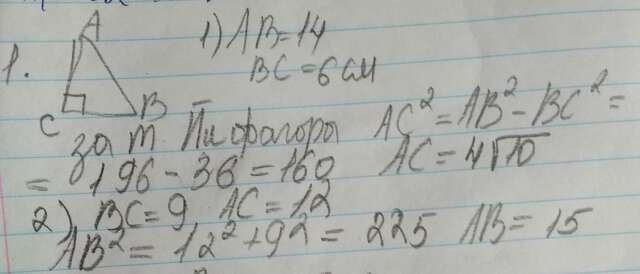 1.
A
C
B
1) AB=14
BC=6 см
за т Пифагора AC² = AB² - BC² =
= 196 - 36 = 160 AC = 4√10
2) BC=9, AC=12
AB² = 12² + 9² = 225 AB = 15